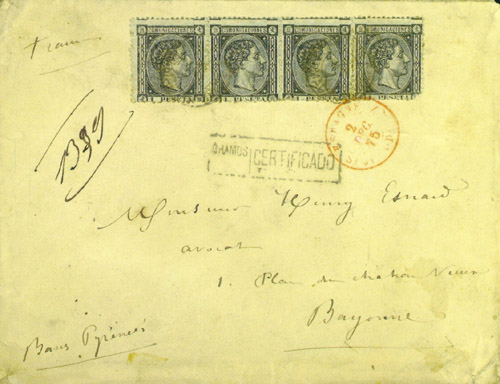 COMUNICACIONES COMUNICACIONES COMUNICACIONES COMUNICACIONES
1 PESETA 1 PESETA 1 PESETA 1 PESETA
2
DEC
75
GRAMOS CERTIFICADO
Monsieur Henry Esnard
avocat
1. Place du château Vieux
Bayonne
Basses Pyrénées